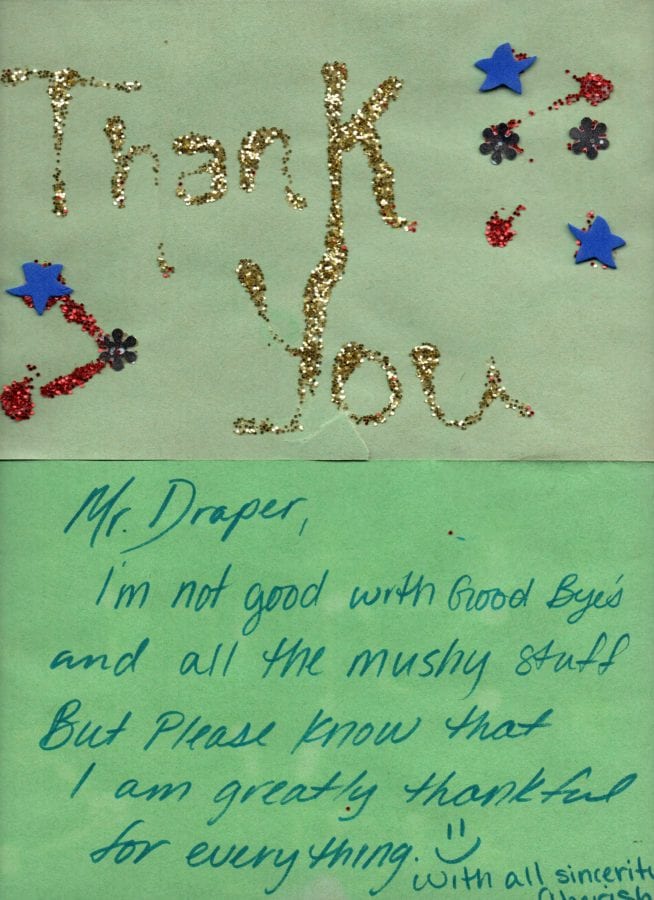 Thank
You
Mr. Draper,
I'm not good with Good Bye's
and all the mushy stuff
But Please know that
I am greatly thankful
for everything.
With all sincerity
Cherish